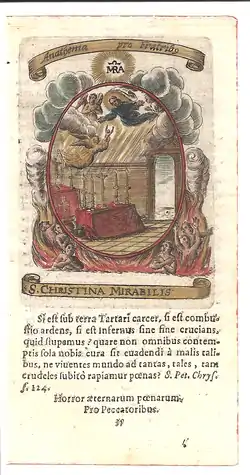 Anathema pro fratribꝰ
MRA
S. CHRISTINA MIRABILIS
Si eſt ſub terra Tartari carcer, ſi eſt combu-
ſtio ardens, ſi est infernus ſine fine crucians,
quid ſtupamus? quare non omnibus contem-
ptis ſola nobis cura ſit euadendi à malis tali-
bus, ne viventes mundo ad tantas, tales, tam
crudeles ſubitò rapiamur pœnas? S. Pet. Chryſ.
ſ. 124.
Horror æternarum pœnarum.
Pro Peccatoribus.